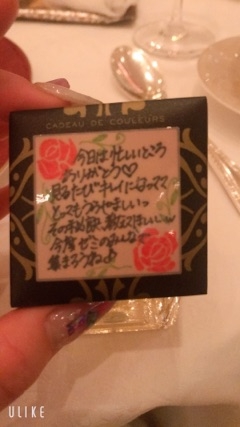 CADEAU DE COULEURS
今日は忙しいところ
ありがとう♡
見るたびキレイになってて
とってもうらやましいっ
その秘訣、教えてほしい
今度ゼミのみんなで
集まろうね♪
ULIKE